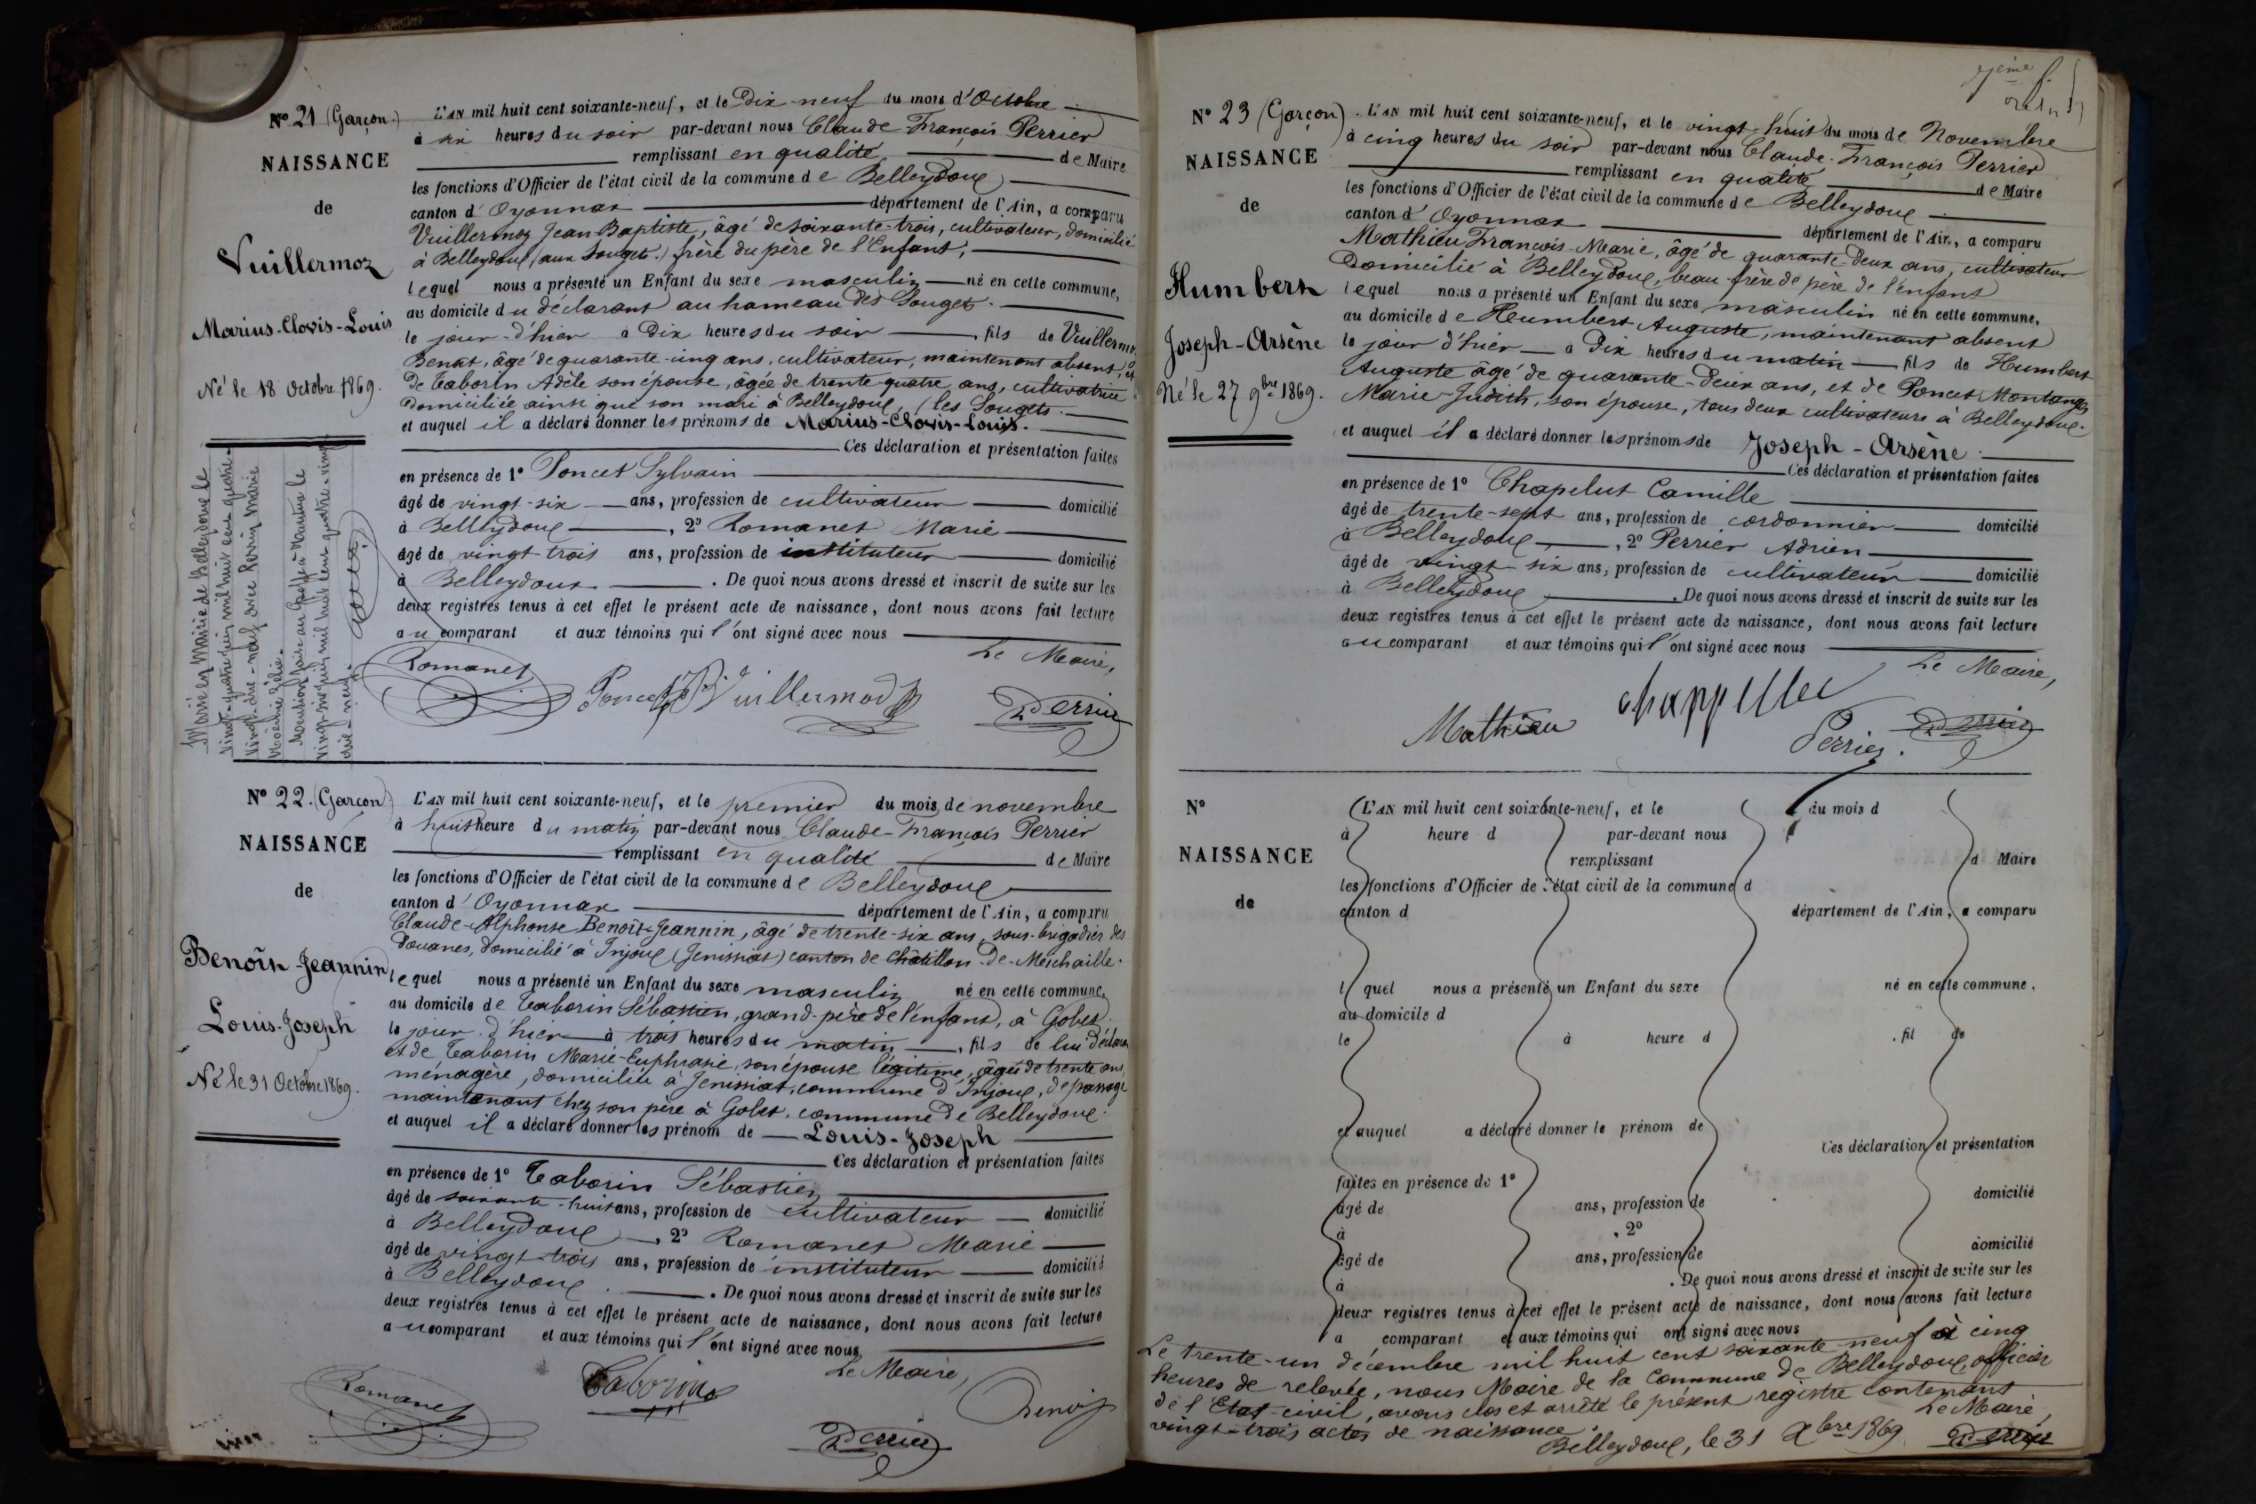 N° 21 (Garçon.)
NAISSANCE
de
Vuillermoz
Marius-Clovis-Louis
Né le 18 Octobre 1869.
L'AN mil huit cent soixante-neuf, et le Dix-neuf du mois d'Octobre
à six heures du soir par-devant nous Claude François Perrier
remplissant en qualité de Maire
les fonctions d'Officier de l'état civil de la commune de Belleydoux
canton d'Oyonnax département de l'Ain, a comparu
Vuillermoz Jean Baptiste, âgé de soixante-trois, cultivateur, domicilié
à Belleydoux (aux Sougets.) frère du père de l'Enfant,
lequel nous a présenté un Enfant du sexe masculin né en cette commune,
au domicile du déclarant au hameau des Sougets.
le jour d'hier à Dix heures du soir fils de Vuillermoz
Benoit, âgé de quarante-cinq ans, cultivateur, maintenant absent, et
de Taborin Adèle son épouse, âgée de trente-quatre ans, cultivatrice
domiciliée ainsi que son mari à Belleydoux, (les Sougets.
et auquel il a déclaré donner les prénoms de Marius-Clovis-Louis.
Ces déclaration et présentation faites
en présence de 1° Poncet Sylvain
âgé de vingt-six ans, profession de cultivateur domicilié
à Belleydoux, 2° Romanet Marie
âgé de vingt-trois ans, profession de instituteur domicilié
à Belleydoux. De quoi nous avons dressé et inscrit de suite sur les
deux registres tenus à cet effet le présent acte de naissance, dont nous avons fait lecture
au comparant et aux témoins qui l'ont signé avec nous
Le Maire,
Romanet Poncet Vuillermoz Perrier
Marié en Mairie de Belleydoux le
vingt-quatre juin mil huit cent quatre-
vingt-dix-neuf avec Perrin Marie
Noémie Élie.
Mention faite au Greffe à Nantua le
vingt-cinq juin mil huit cent quatre-vingt
dix-neuf.
N° 22. (Garçon)
NAISSANCE
de
Benoît-Jeannin
Louis-Joseph
Né le 31 Octobre 1869.
L'AN mil huit cent soixante-neuf, et le premier du mois de novembre
à huit heure du matin par-devant nous Claude-François Perrier
remplissant en qualité de Maire
les fonctions d'Officier de l'état civil de la commune de Belleydoux
canton d'Oyonnax département de l'Ain, a comparu
Claude-Alphonse Benoît-Jeannin, âgé de trente-six ans, sous-brigadier des
douanes, domicilié à Injoux (Génissiat) canton de Châtillon-De-Michaille.
lequel nous a présenté un Enfant du sexe masculin né en cette commune,
au domicile de Taborin Sébastien, grand-père de l'enfant, à Gobet.
le jour d'hier à trois heures du matin, fils de lui déclarant
et de Taborin Marie-Euphrasie, son épouse légitime, âgée de trente ans,
ménagère, domiciliée à Génissiat, commune d'Injoux, de passage
maintenant chez son père à Gobet, commune de Belleydoux.
et auquel il a déclaré donner les prénom de Louis-Joseph
Ces déclaration et présentation faites
en présence de 1° Taborin Sébastien
âgé de soixante-huit ans, profession de cultivateur domicilié
à Belleydoux, 2° Romanet Marie
âgé de vingt-trois ans, profession de instituteur domicilié
à Belleydoux. De quoi nous avons dressé et inscrit de suite sur les
deux registres tenus à cet effet le présent acte de naissance, dont nous avons fait lecture
au comparant et aux témoins qui l'ont signé avec nous
Le Maire,
Romanet Taborin Perrier Benoit
7ème
N° 23 (Garçon)
NAISSANCE
de
Humbert
Joseph-Arsène
Né le 27 9bre 1869.
L'AN mil huit cent soixante-neuf, et le vingt-huit du mois de Novembre
à cinq heures du soir par-devant nous Claude-François Perrier
remplissant en qualité de Maire
les fonctions d'Officier de l'état civil de la commune de Belleydoux
canton d'Oyonnax département de l'Ain, a comparu
Mathieu François-Marie, âgé de quarante-deux ans, cultivateur
domicilié à Belleydoux, beau-frère de père de l'enfant
lequel nous a présenté un Enfant du sexe masculin né en cette commune,
au domicile de Humbert Auguste, maintenant absent
le jour d'hier à Dix heures du matin fils de Humbert
Auguste âgé de quarante-deux ans, et de Poncet Montange
Marie-Judith, son épouse, tous deux cultivateurs à Belleydoux.
et auquel il a déclaré donner les prénoms de Joseph-Arsène.
Ces déclaration et présentation faites
en présence de 1° Chapelut Camille
âgé de trente-sept ans, profession de cordonnier domicilié
à Belleydoux, 2° Perrier Adrien
âgé de vingt-six ans, profession de cultivateur domicilié
à Belleydoux. De quoi nous avons dressé et inscrit de suite sur les
deux registres tenus à cet effet le présent acte de naissance, dont nous avons fait lecture
au comparant et aux témoins qui l'ont signé avec nous
Le Maire,
Mathieu Perrier. Perrier
N°
NAISSANCE
de
L'AN mil huit cent soixante-neuf, et le du mois d
à heure d par-devant nous
remplissant d Maire
les fonctions d'Officier de l'état civil de la commune d
canton d département de l'Ain, a comparu
l quel nous a présenté un Enfant du sexe né en cette commune,
au domicile d
le à heure d , fil de
et auquel a déclaré donner le prénom de
Ces déclaration et présentation
faites en présence de 1°
âgé de ans, profession de domicilié
à , 2°
âgé de ans, profession de domicilié
à . De quoi nous avons dressé et inscrit de suite sur les
deux registres tenus à cet effet le présent acte de naissance, dont nous avons fait lecture
a comparant et aux témoins qui ont signé avec nous
Le trente-un décembre mil huit cent soixante neuf à cinq
heures de relevée, nous Maire de la Commune de Belleydoux, officier
de l'Etat-civil, avons clos et arrêté le présent registre contenant
vingt-trois actes de naissance.
Le Maire,
Belleydoux, le 31 Xbre 1869 Perrier